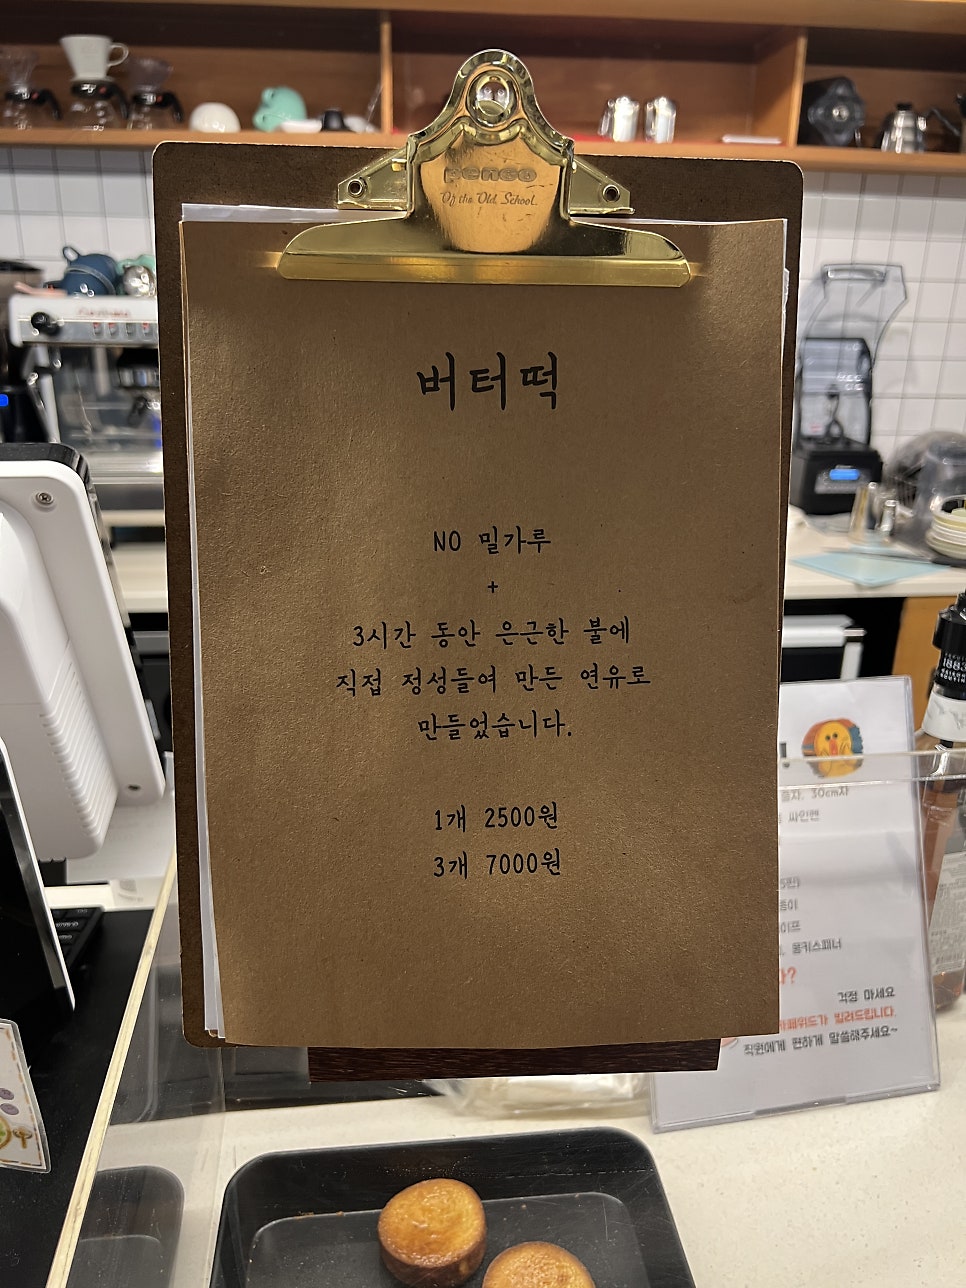 penco
Of the Old School.
버터떡
NO 밀가루
+
3시간 동안 은근한 불에
직접 정성들여 만든 연유로
만들었습니다.
1개 2500원
3개 7000원
1883
30cm자
몽키스패너
걱정 마세요
빌려드립니다.
직원에게 편하게 말씀해주세요~